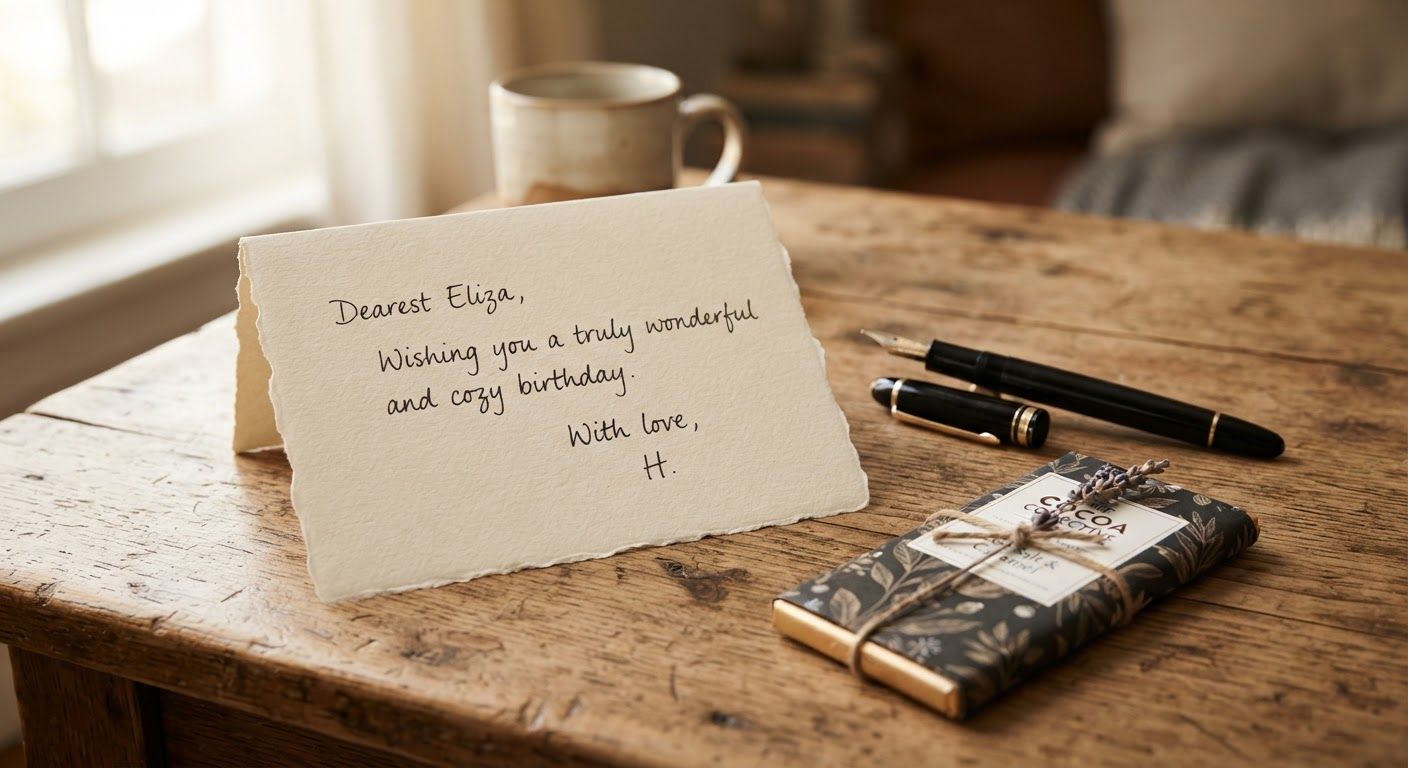 Dearest Eliza,
Wishing you a truly wonderful
and cozy birthday.
With love,
H.
COCOA
COLLECTIVE
&